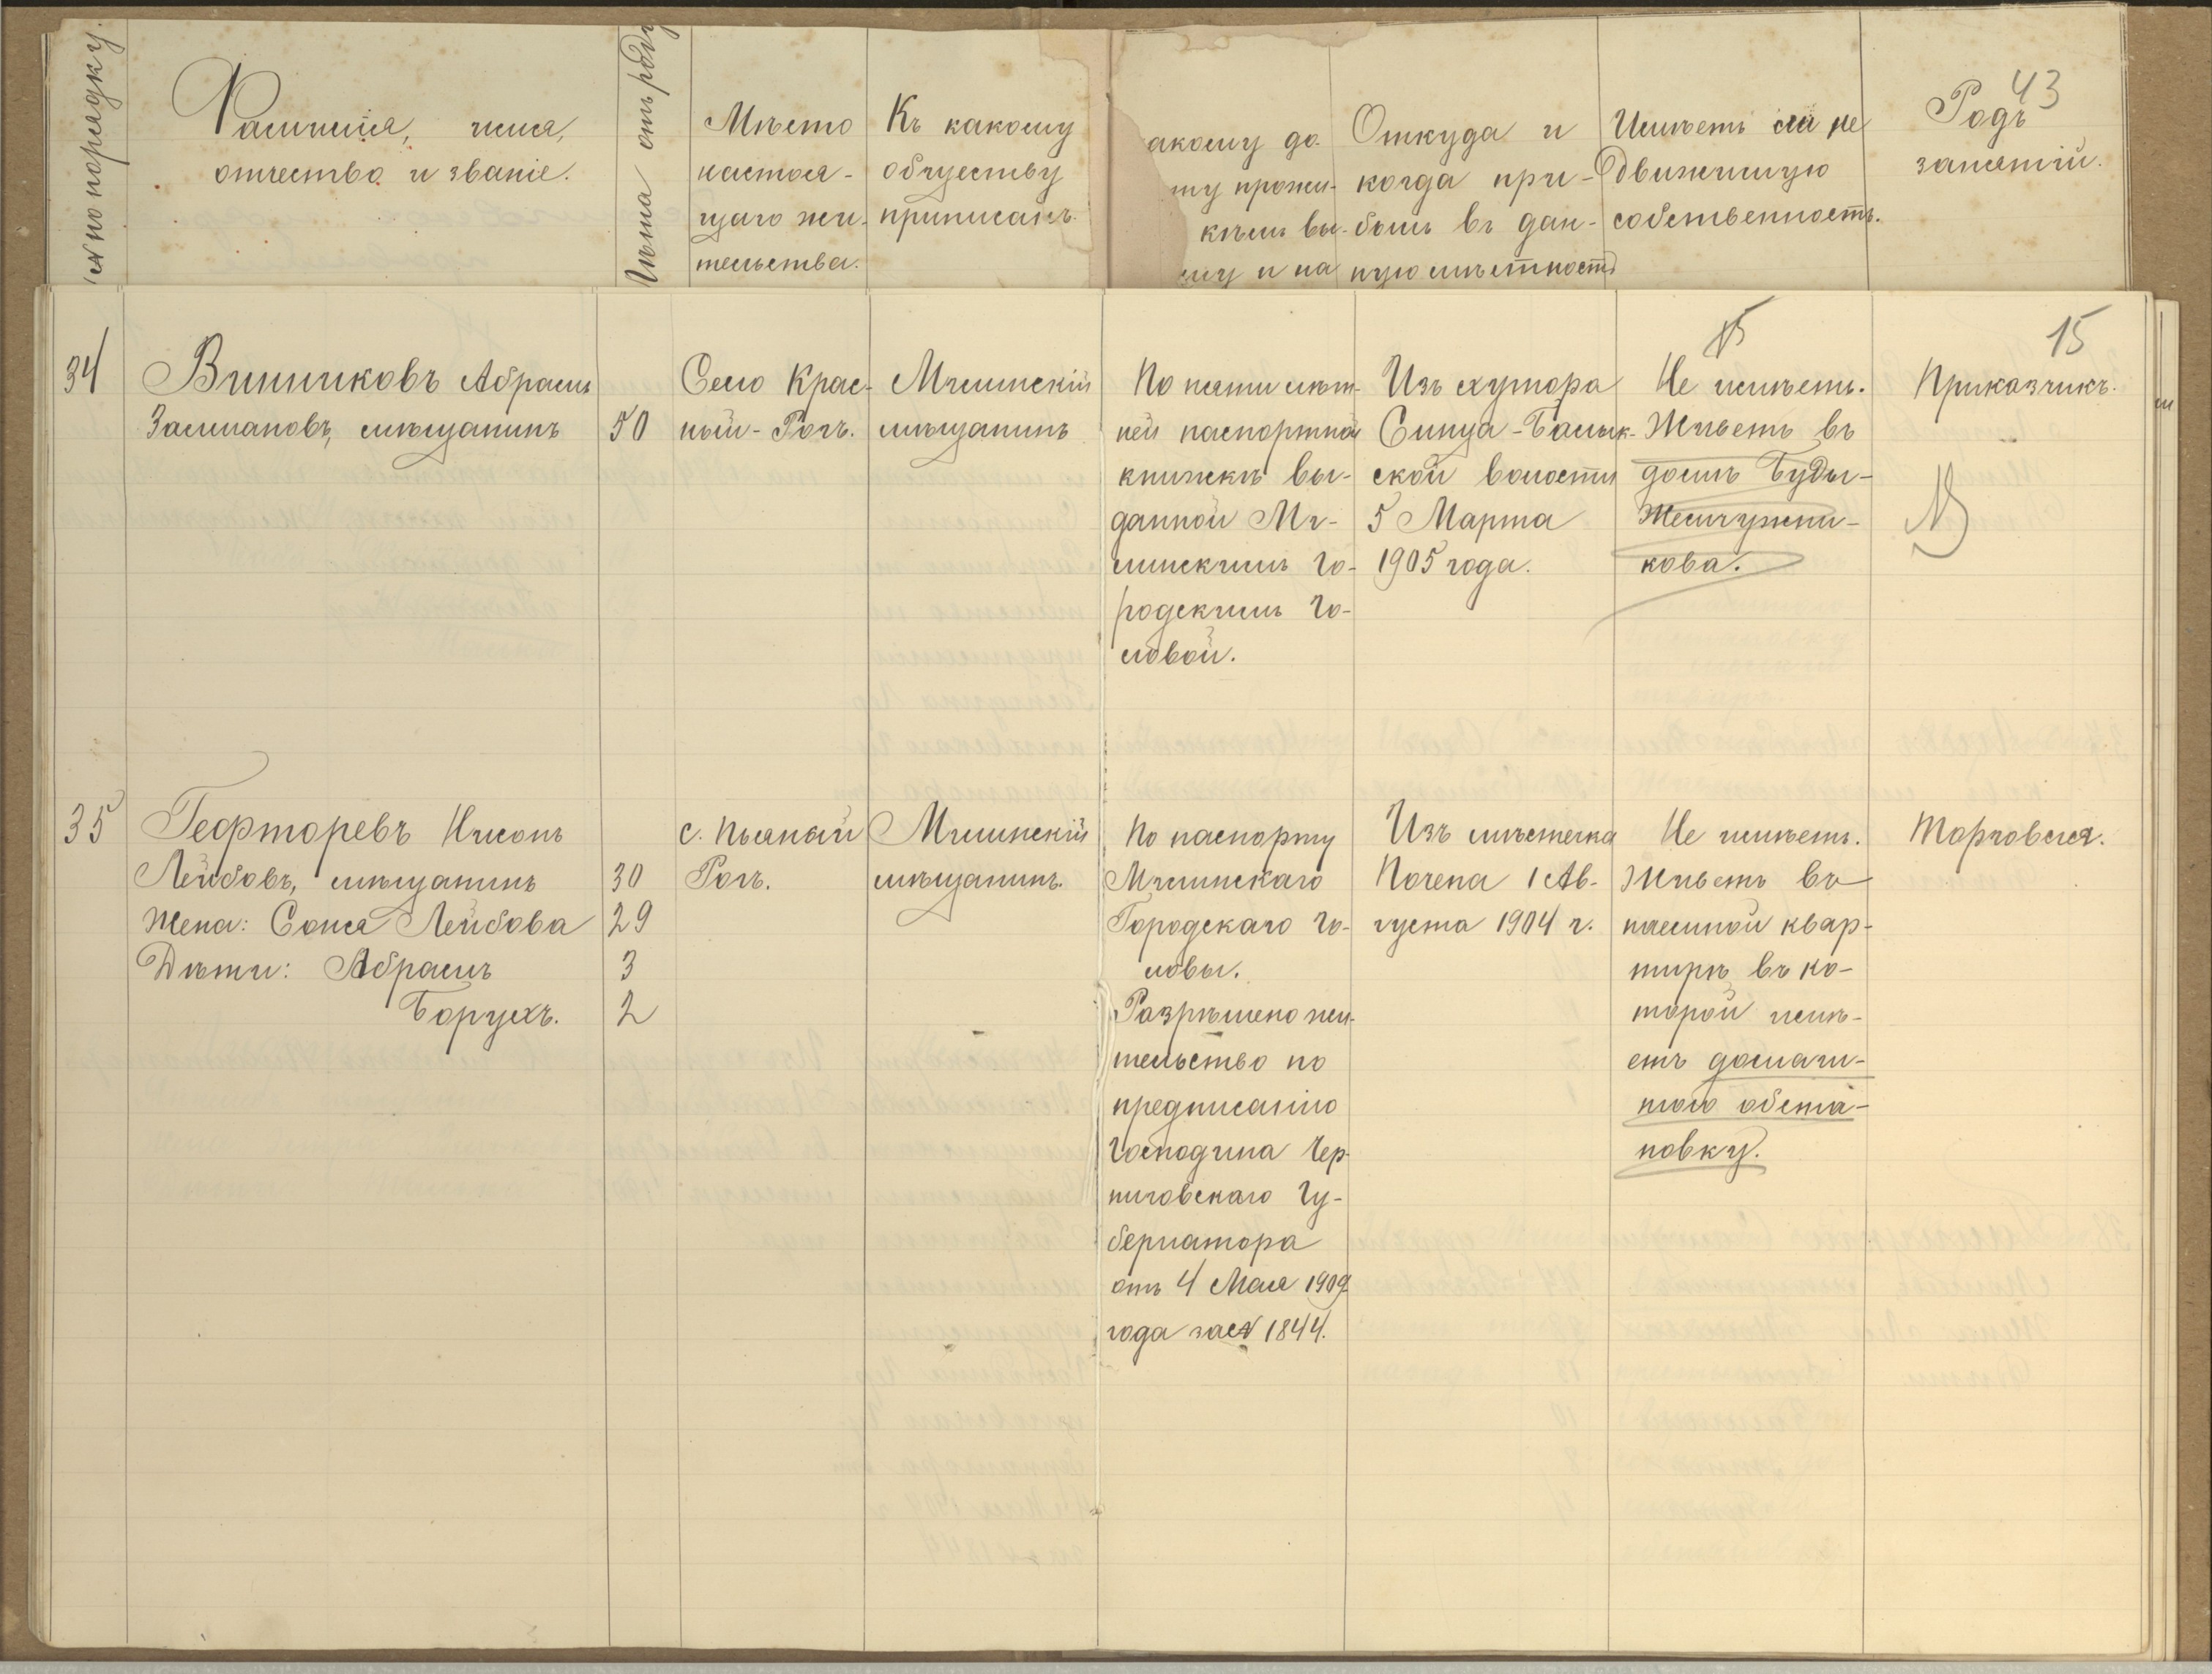 43
№ по порядку
Фамилія, имя,
отчество и званіе.
Лѣта отъ роду
Мѣсто
настоя-
щаго жи-
тельства.
Къ какому
обществу
приписанъ.
акому до-
ту прожи-
кѣмъ вы-
му и на
Откуда и
когда при-
былъ въ дан-
ную мѣстность
Имѣетъ ли не
движимую
собственность.
Родъ
занятій.
15
34
Винниковъ Абрамъ
Залмановъ, мѣщанинъ
50
Село Крас-
ный-Рогъ.
Мглинскій
мѣщанинъ
По пяти лѣт-
ней паспортной
книжкѣ вы-
данной Мг-
линскимъ Го-
родскимъ Го-
ловой.
Изъ хутора
Синца-Балык-
ской волости
5 Марта
1905 года.
Не имѣетъ.
Живетъ въ
домѣ Буды-
Жемчужни-
кова.
Приказчикъ.
35
Гефторевъ Нисонъ
Лейбовъ, мѣщанинъ
30
Жена: Соня Лейбова
29
Дѣти: Абрамъ
3
Борухъ.
2
с. Пьяный
Рогъ.
Мглинскій
мѣщанинъ.
По паспорту
Мглинскаго
Городскаго Го-
ловы.
Разрѣшено жи-
тельство по
предписанію
Господина Чер-
ниговскаго Гу-
бернатора
отъ 4 Мая 1909
года за № 1844.
Изъ мѣстечка
Почепа 1 Ав-
густа 1904 г.
Не имѣетъ.
Живетъ въ
наемной квар-
тирѣ, въ ко-
торой имѣ-
етъ домаш-
нюю обста-
новку.
Торговля.